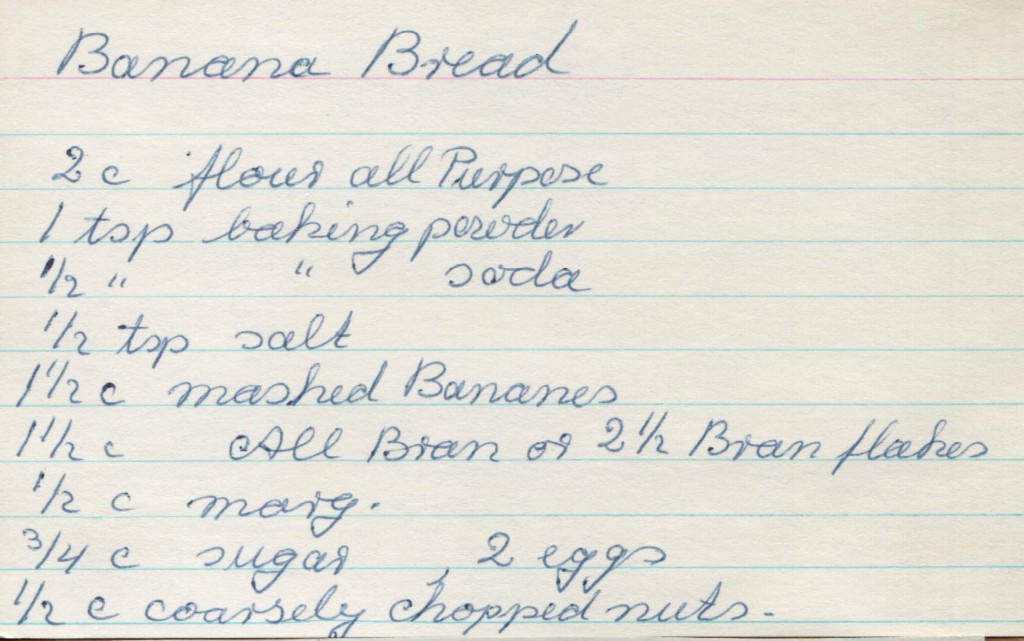 Banana Bread
2 c flour all Purpose
1 tsp baking powder
1/2 " " soda
1/2 tsp salt
1 1/2 c mashed Bananes
1 1/2 c All Bran or 2 1/2 Bran flakes
1/2 c marg.
3/4 c sugar, 2 eggs
1/2 c coarsely chopped nuts.